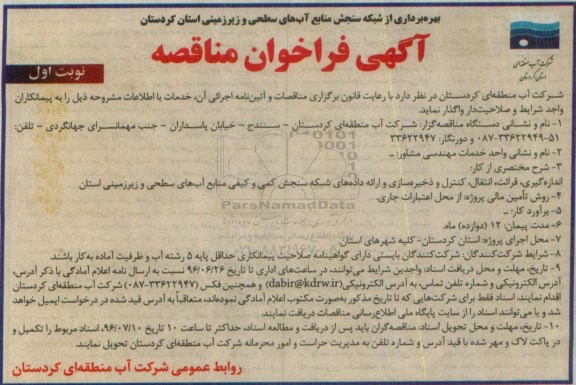 بهره‌برداری از شبکه سنجش منابع آب‌های سطحی و زیرزمینی استان کردستان
آگهی فراخوان مناقصه
نوبت اول
شرکت آب منطقه‌ای
استان کردستان
شرکت آب منطقه‌ای کردستان در نظر دارد با رعایت قانون برگزاری مناقصات و آئین‌نامه اجرائی آن، خدمات با اطلاعات مشروحه ذیل را به پیمانکاران
واجد شرایط و صلاحیت‌دار واگذار نماید.
۱- نام و نشانی دستگاه مناقصه‌گزار: شرکت آب منطقه‌ای کردستان – سنندج – خیابان پاسداران – جنب مهمانسرای جهانگردی – تلفن:
۰۸۷-۳۳۶۲۲۹۴۹-۵۱ و دورنگار: ۳۳۶۲۲۹۴۷
۲- نام و نشانی واحد خدمات مهندسی مشاور: ـ
۳- شرح مختصری از کار:
اندازه‌گیری، قرائت، انتقال، کنترل و ذخیره‌سازی و ارائه داده‌های شبکه سنجش کمی و کیفی منابع آب‌های سطحی و زیرزمینی استان
۴- روش تأمین مالی پروژه: از محل اعتبارات جاری.
۵- برآورد کار: ـ
۶- مدت پیمان: ۱۲ (دوازده) ماه.
۷- محل اجرای پروژه: استان کردستان- کلیه شهرهای استان.
۸- شرایط شرکت‌کنندگان: شرکت‌کنندگان بایستی دارای گواهینامه صلاحیت پیمانکاری حداقل پایه ۵ رشته آب و ظرفیت آماده به‌کار باشند.
۹- تاریخ، مهلت و محل دریافت اسناد: واجدین شرایط می‌توانند، در ساعت‌های اداری تا تاریخ ۹۶/۰۶/۲۶ نسبت به ارسال نامه اعلام آمادگی با ذکر آدرس،
آدرس الکترونیکی و شماره تلفن تماس، به آدرس الکترونیکی (dabir@kdrw.ir) و همچنین فکس (۰۸۷-۳۳۶۲۲۹۴۷) شرکت آب منطقه‌ای کردستان
اقدام نمایند. اسناد فقط برای شرکت‌هایی که تا تاریخ مذکور به‌صورت مکتوب اعلام آمادگی نموده‌اند، متعاقباً به آدرس قید شده در درخواست ایمیل خواهد
شد و یا می‌توانند اسناد را از سایت پایگاه ملی اطلاع‌رسانی مناقصات دریافت نمایند.
۱۰- تاریخ، مهلت و محل تحویل اسناد: مناقصه‌گران باید پس از دریافت و مطالعه اسناد، حداکثر تا ساعت ۱۰ تاریخ ۹۶/۰۷/۱۰، اسناد مربوط را تکمیل و
در پاکت لاک و مهر شده با قید آدرس و شماره تلفن به مدیریت حراست و امور محرمانه شرکت آب منطقه‌ای کردستان تحویل نمایند.
روابط عمومی شرکت آب منطقه‌ای کردستان
ParsNamadData